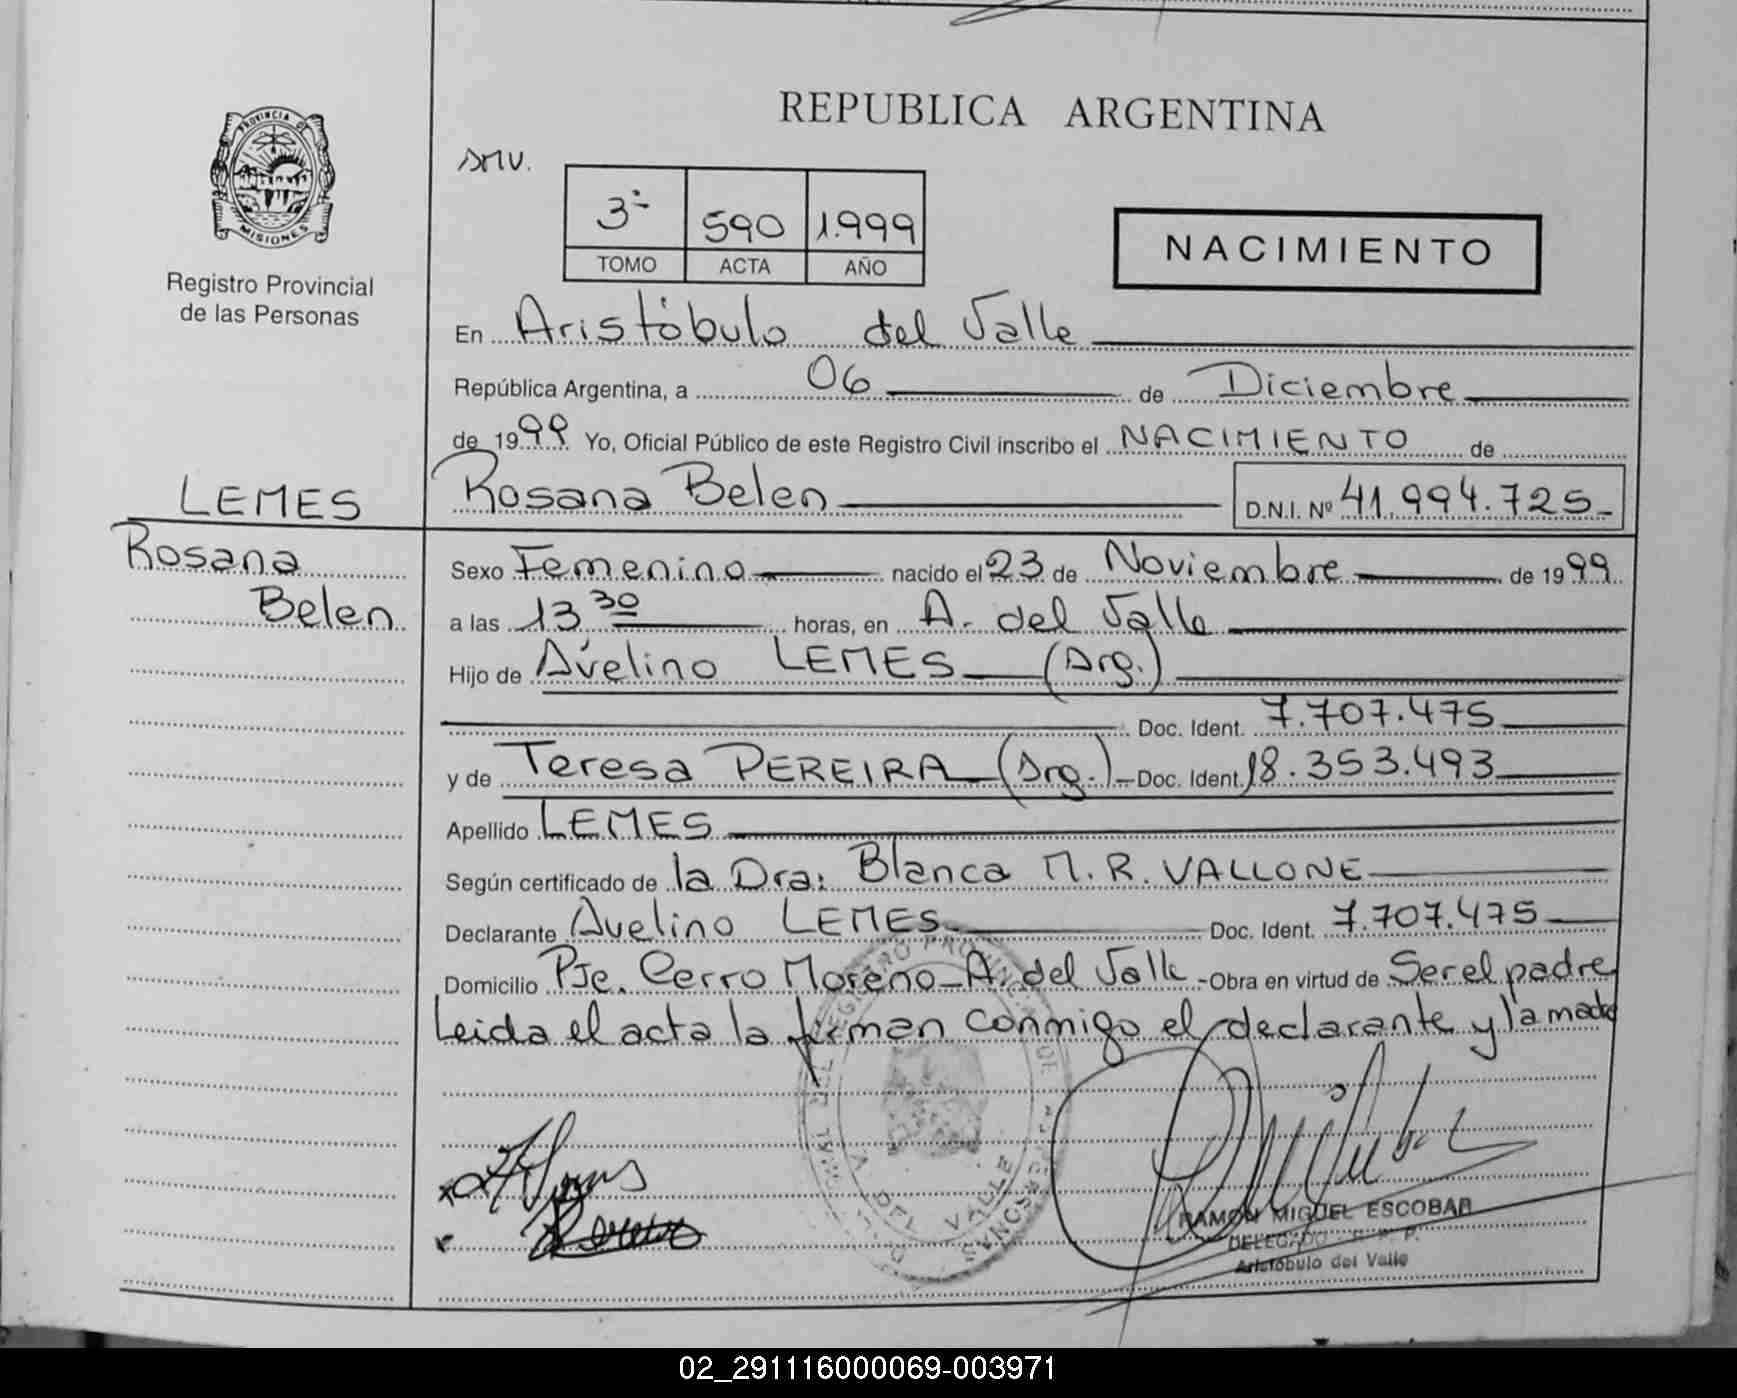 REPUBLICA ARGENTINA
PROVINCIA DE
MISIONES
Registro Provincial
de las Personas
SMV.
3º 590 1.999
TOMO ACTA AÑO
NACIMIENTO
En Aristóbulo del Valle
República Argentina, a 06 de Diciembre
de 1999 Yo, Oficial Público de este Registro Civil inscribo el NACIMIENTO de
LEMES
Rosana Belen D.N.I. Nº 41.994.725
Rosana
Belen
Sexo Femenino nacido el 23 de Noviembre de 1999
a las 13 30 horas, en A. del Valle
Hijo de Avelino LEMES (Arg.)
Doc. Ident. 7.707.475
y de Teresa PEREIRA (Arg.) Doc. Ident. 18.353.493
Apellido LEMES
Según certificado de la Dra: Blanca M. R. VALLONE
Declarante Avelino LEMES Doc. Ident. 7.707.475
Domicilio Pje. Cerro Moreno - A. del Valle - Obra en virtud de Ser el padre
Leida el acta la firman conmigo el declarante y la madre
RAMON MIGUEL ESCOBAR
DELEGADO R. P. P.
Aristóbulo del Valle
02_291116000069-003971